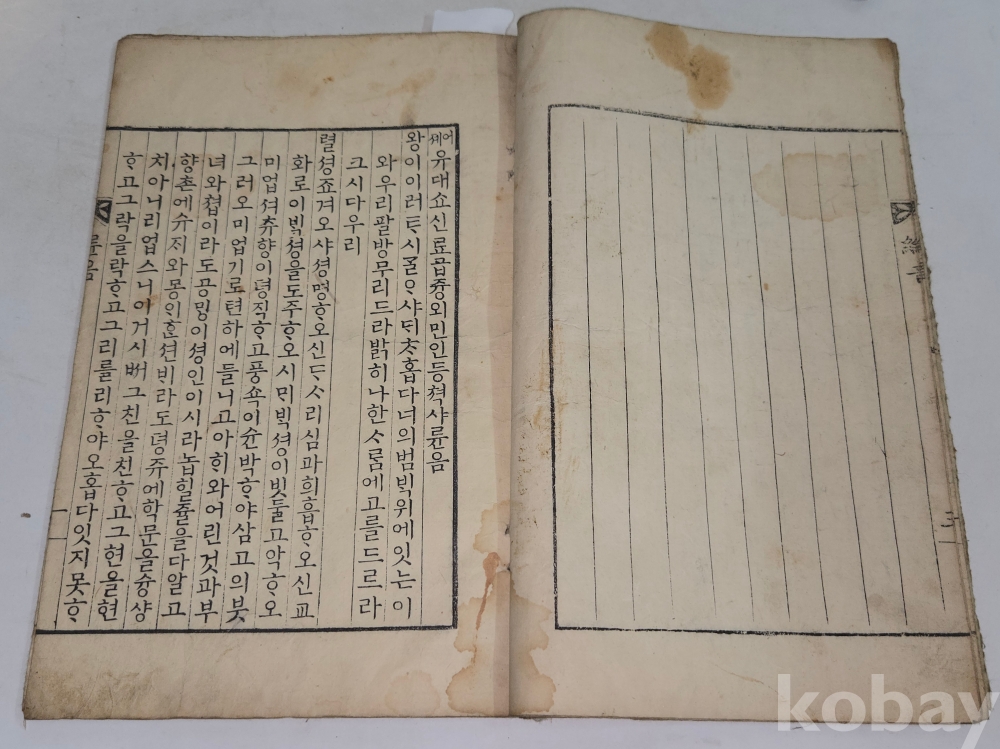 어졔유대쇼신료곱즁외민인등쳑샤륜음
왕이이러ᄐᆞ시ᄀᆞᆯᄋᆞ샤ᄃᆡᄎᆞ홉다녀의범ᄇᆡᆨ위에잇는이
와우리팔방무리드라ᄇᆞᆰ히나한ᄉᆞ룸에고를드르라
크시다우리
렬셩죠겨오샤셩명ᄒᆞ오신ᄃᆞᄉᆞ리심과희흡ᄒᆞ오신교
화로이ᄇᆡᆨ셩을도주ᄒᆞ오시ᄆᆡᄇᆡᆨ셩이빗둘고악ᄒᆞ오
미업셔츄향이뎡직ᄒᆞ고풍쇽이슌박ᄒᆞ야삼고의붓
그러오미업기로텬하에들니고아ᄒᆡ와어린것과부
녀와쳡이라도공밍이셩인이시라놉힐쥴을다알고
향촌에슈지와몽ᄋᆡ훈션ᄇᆡ라도뎡쥬에학문을슝샹
치아니리업스니이거시ᄡᅥ그친을친ᄒᆞ고그현을현
ᄒᆞ고그락을락ᄒᆞ고그리를리ᄒᆞ야오홉다잇지못ᄒᆞ
륜음
一
kobay